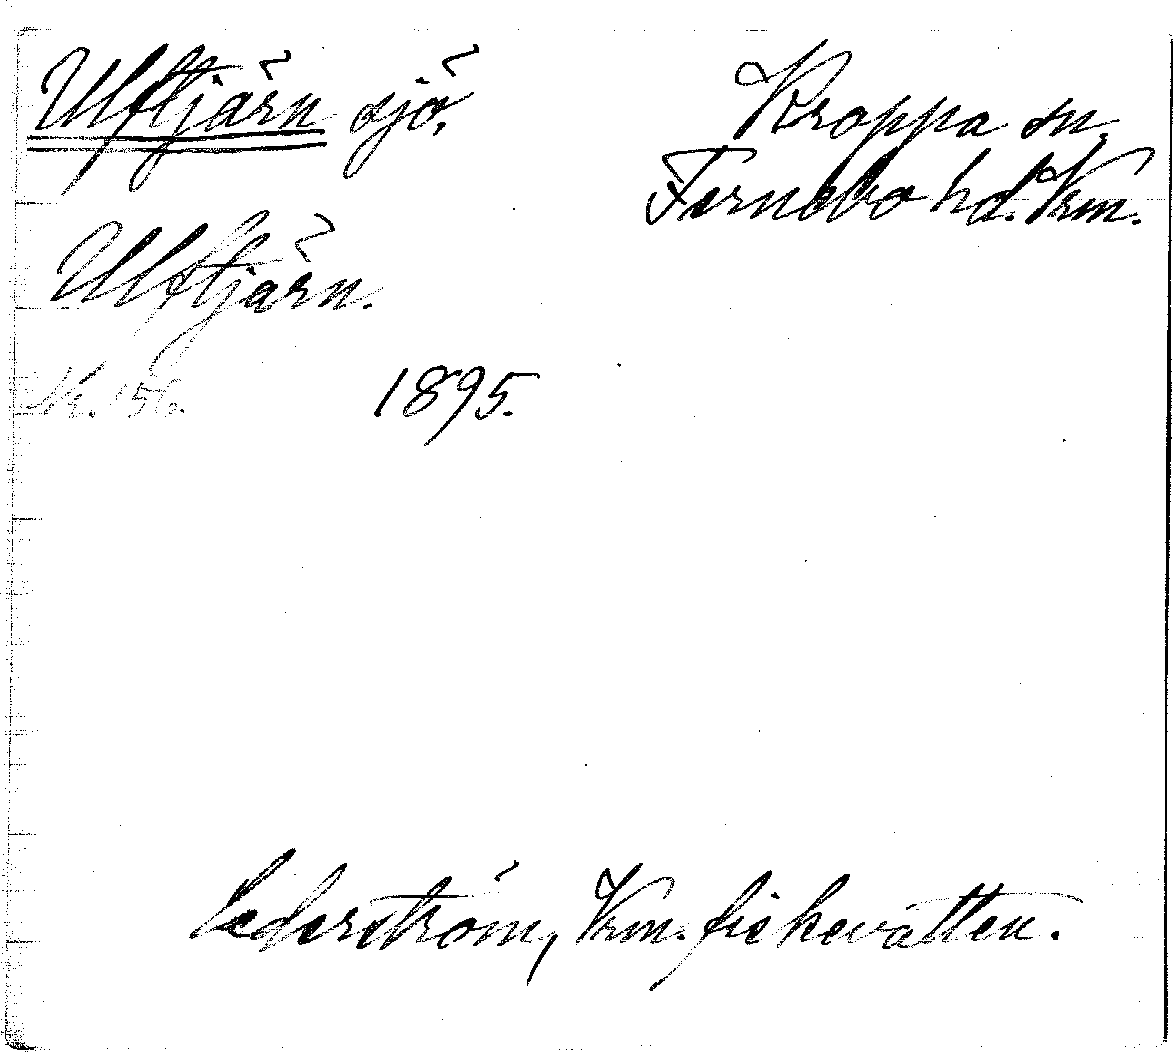 Ulftjärn sjö.
Kroppa sn.
Fernebo hd. Vrm.
Ulftjärn.
Nr. 156.
1895.
Cederström, Vrm. fiskevatten.